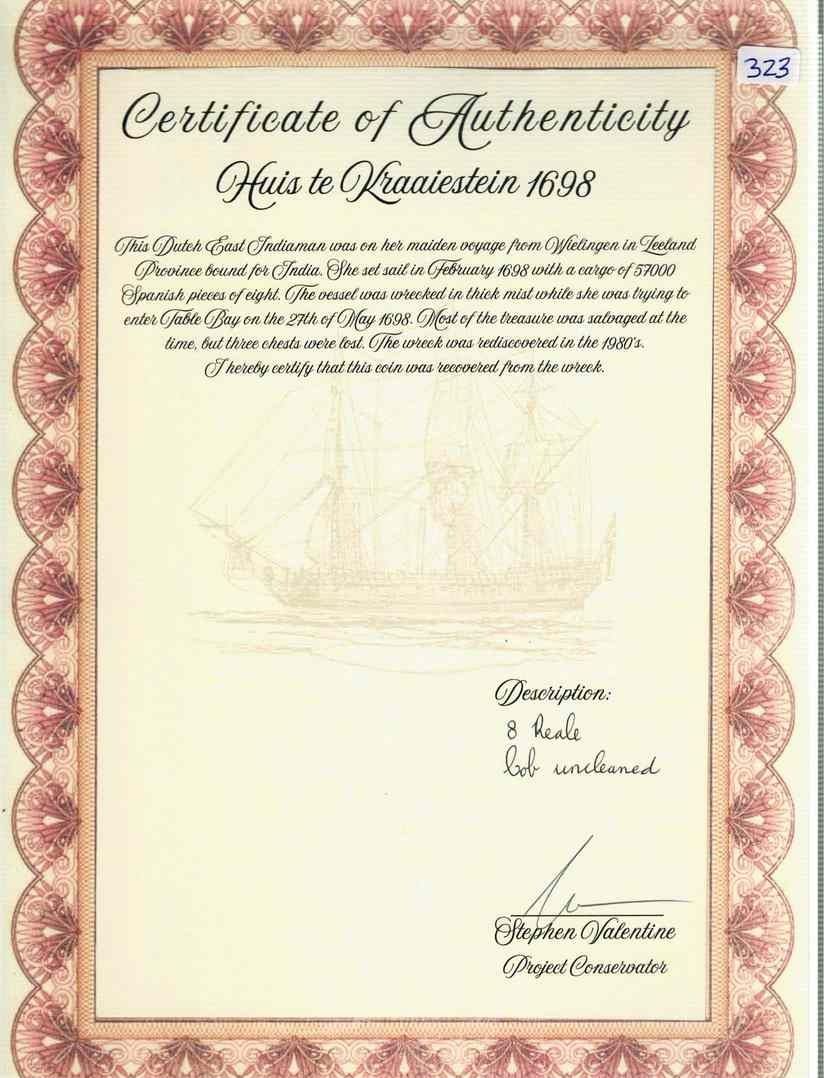 323
Certificate of Authenticity
Huis te Kraaiestein 1698
This Dutch East Indiaman was on her maiden voyage from Wielingen in Zeeland
Province bound for India. She set sail in February 1698 with a cargo of 57000
Spanish pieces of eight. The vessel was wrecked in thick mist while she was trying to
enter Table Bay on the 27th of May 1698. Most of the treasure was salvaged at the
time, but three chests were lost. The wreck was rediscovered in the 1980's.
I hereby certify that this coin was recovered from the wreck.
Description:
8 Reale
Cob uncleaned
Stephen Valentine
Project Conservator